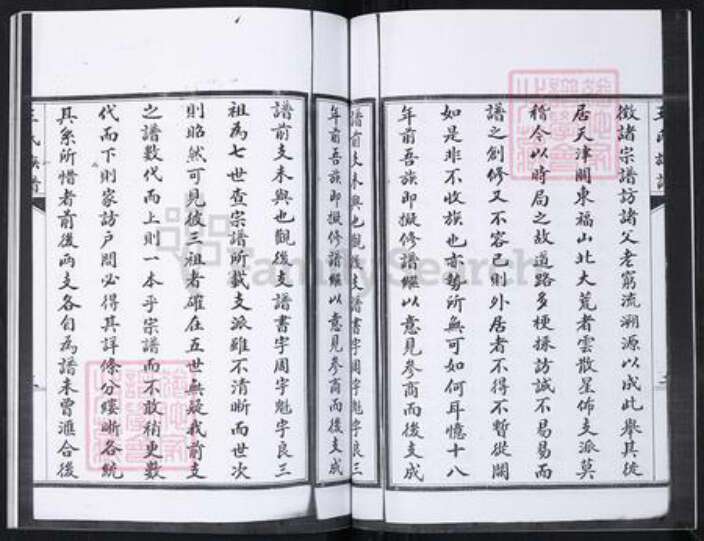 徵諸宗譜訪諸父老窮流溯源以成此舉其徙
居天津關東福山北大荒者雲散星佈支派莫
稽今以時局之故道路多梗採訪誠不易易而
譜之創修又不容已則外居者不得不暫從闕
如是非不收族也亦勢所無可如何耳憶十八
年前吾族即擬修譜繼以意見參商而後支成
譜前支未與也觀後支譜書字周字魁字良三
年前吾族即擬修譜繼以意見參商而後支成
譜前支未與也觀後支譜書字周字魁字良三
祖為七世查宗譜所載支派雖不清晰而世次
則昭然可見彼三祖者確在五世無疑我前支
之譜數代而上則一本乎宗譜而不敢稍更數
代而下則家訪戶問必得其詳條分縷晰各統
其系所惜者前後兩支各自為譜未曾滙合後
王氏族譜
FamilySearch